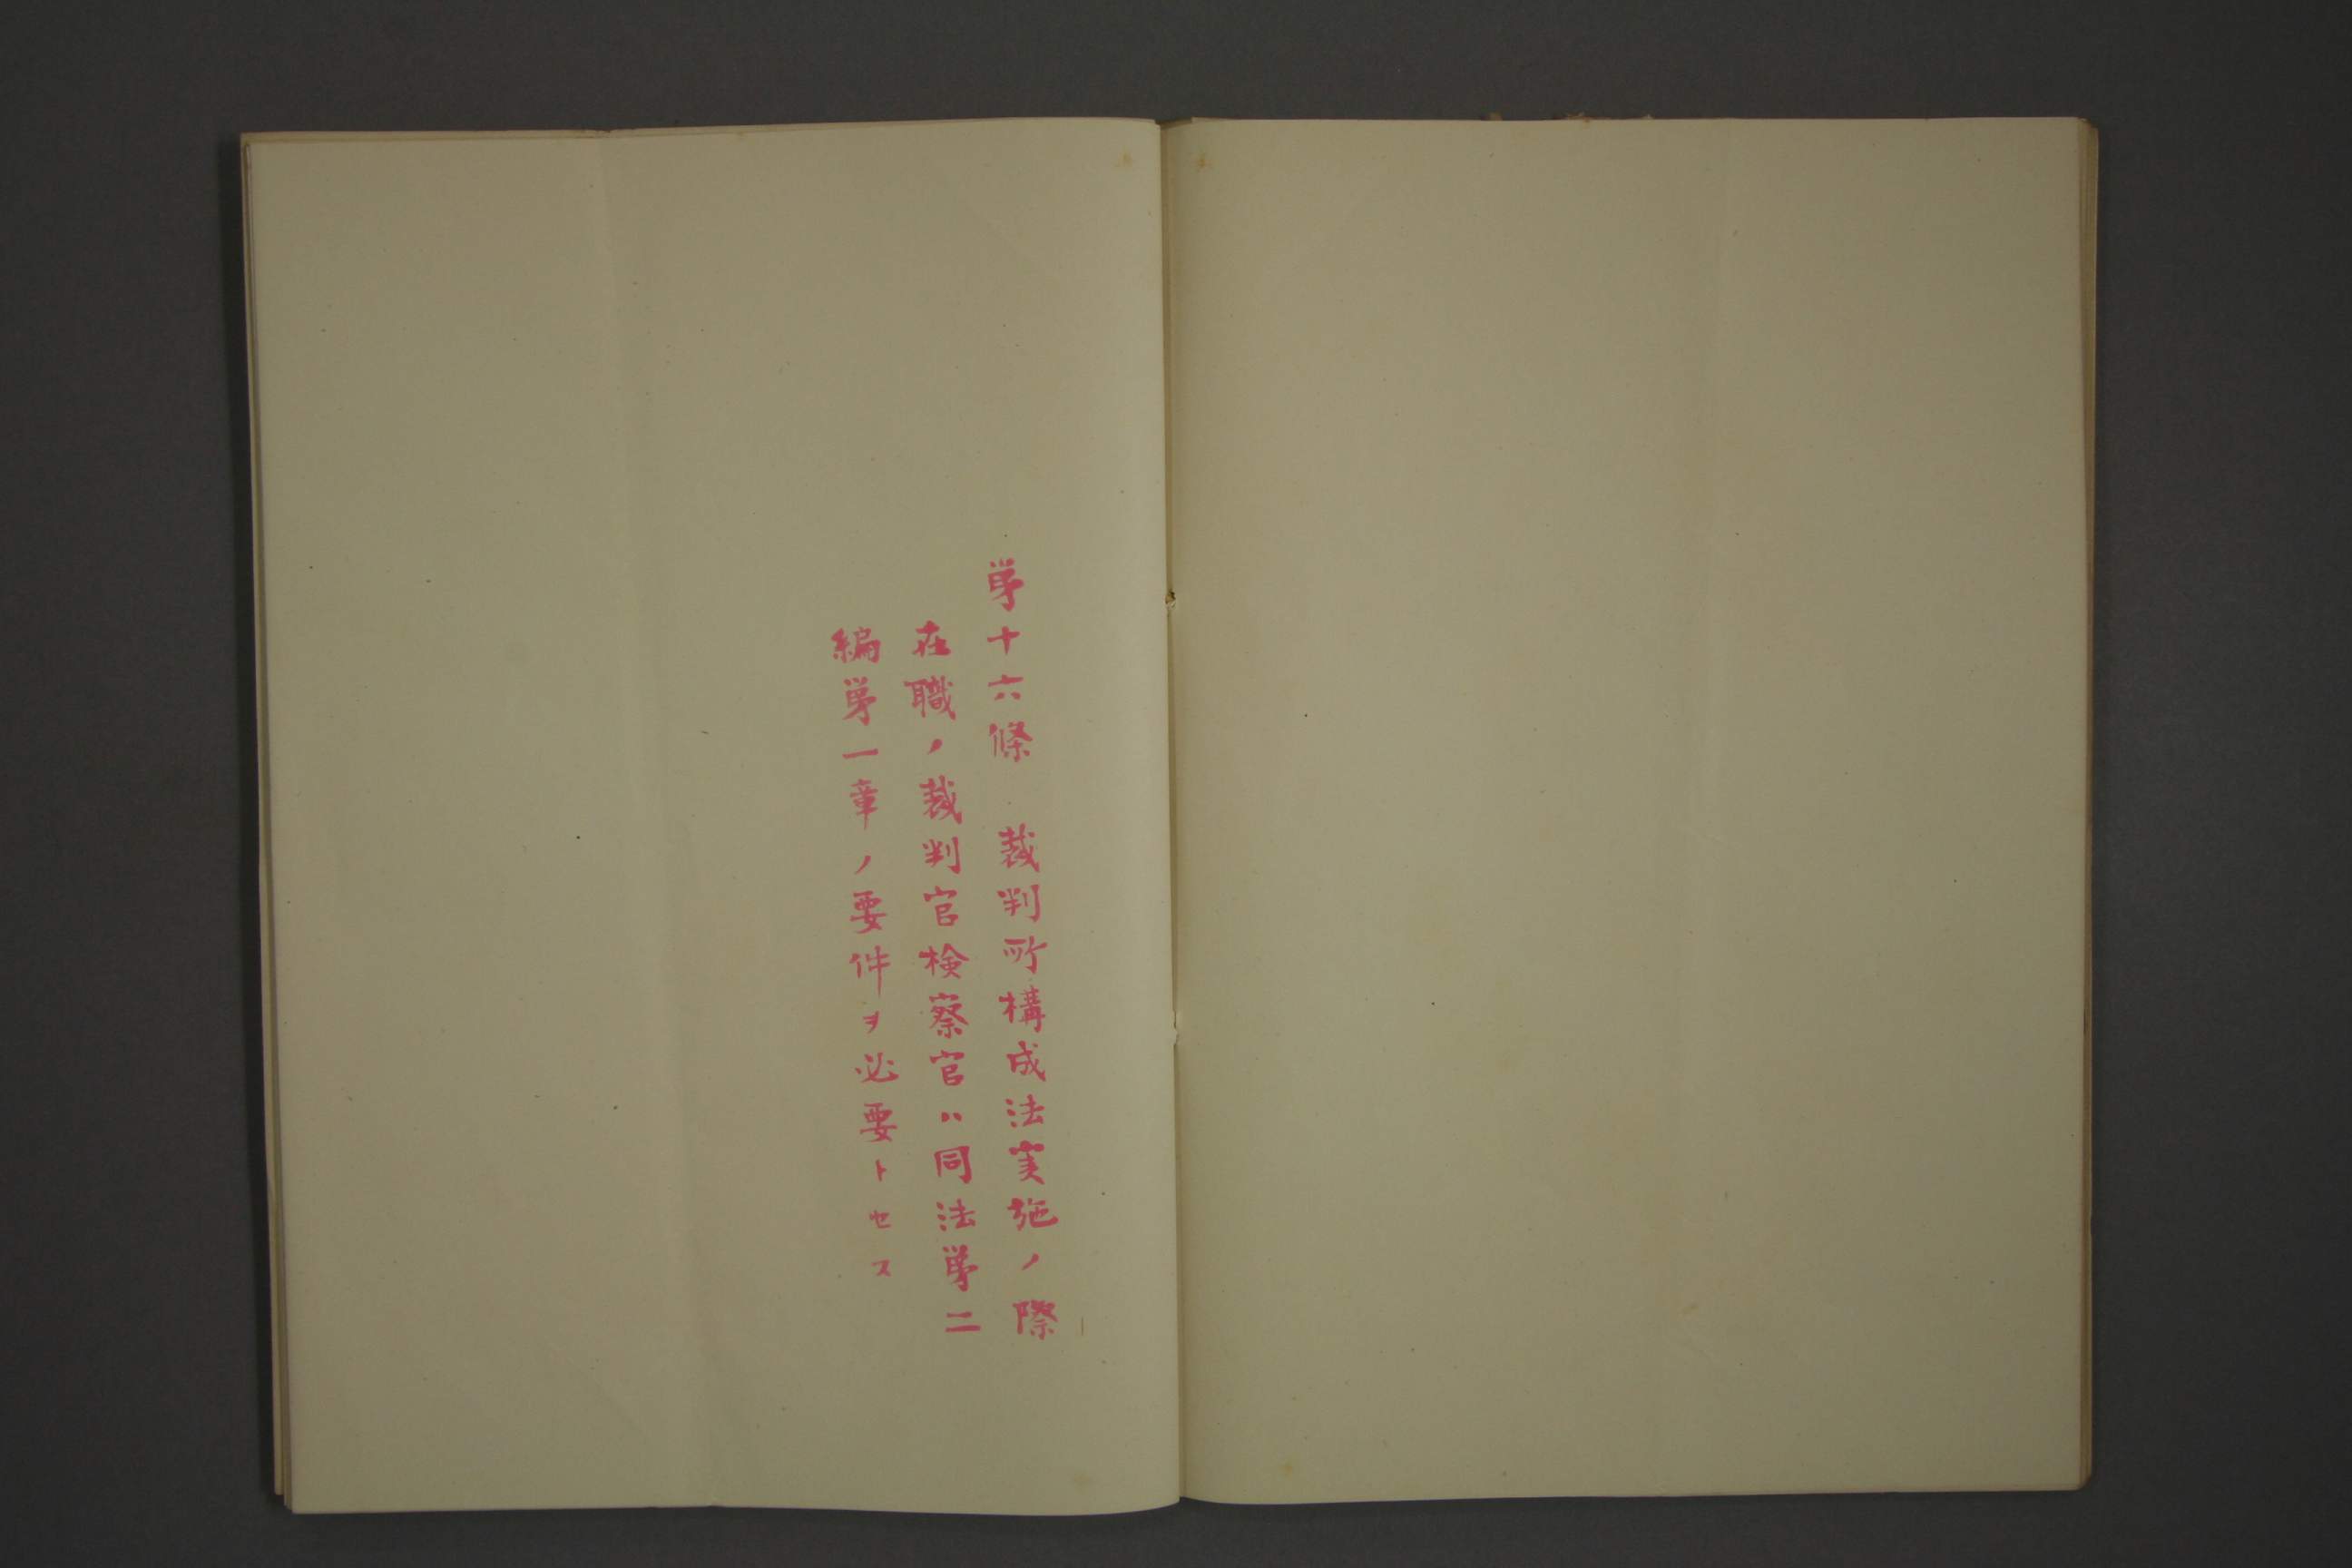 第十六條　裁判所構成法実施ノ際
在職ノ裁判官検察官ハ同法第二
編第一章ノ要件ヲ必要トセス